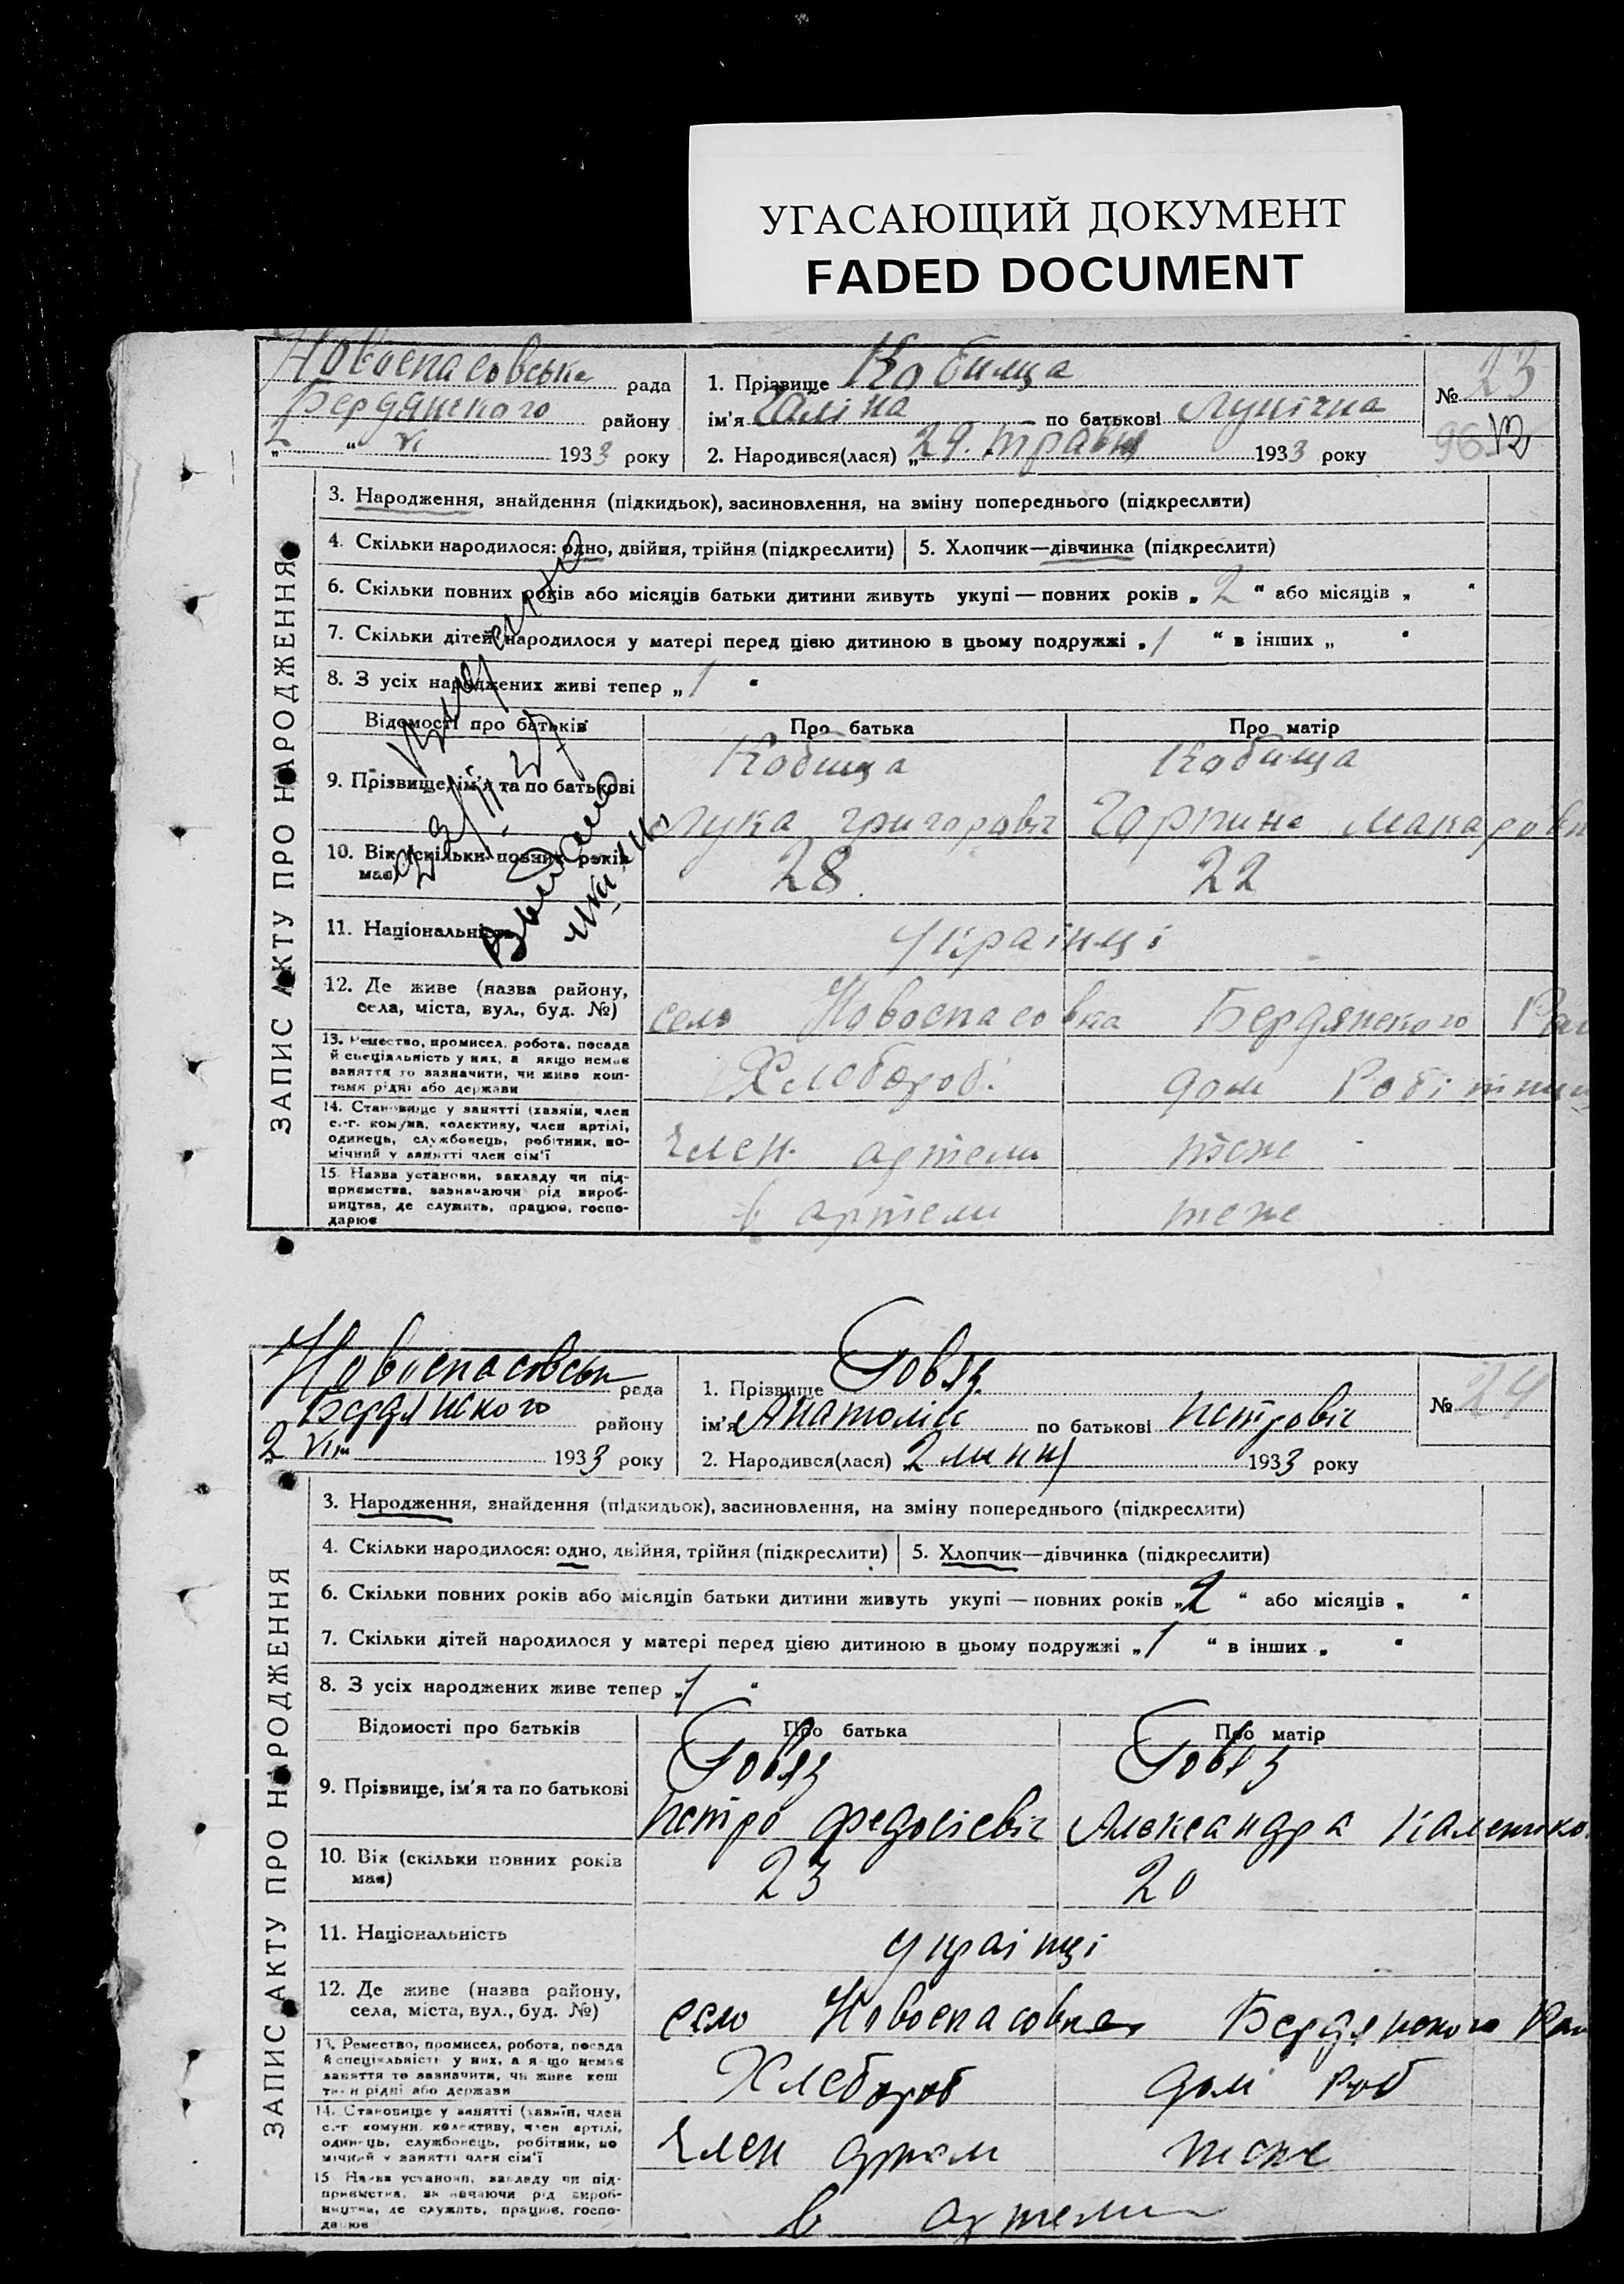 УГАСАЮЩИЙ ДОКУМЕНТ
FADED DOCUMENT
Новоспасовська рада
Бердянского району
„2“ VI 1933 року
1. Прізвище Кобища
ім'я Галіна по батькові Лукічна
2. Народився(лася) „29. травня 1933 року
№ 23
ЗАПИС АКТУ ПРО НАРОДЖЕННЯ
3. Народження, знайдення (підкидьок), засиновлення, на зміну попереднього (підкреслити)
4. Скільки народилося: одно, двійня, трійня (підкреслити) 5. Хлопчик—дівчинка (підкреслити)
6. Скільки повних років або місяців батьки дитини живуть укупі — повних років „ 2 “ або місяців „ “
7. Скільки дітей народилося у матері перед цією дитиною в цьому подружжі „ 1 “ в інших „ “
8. З усіх народжених живі тепер „ 1 “
Відомості про батьків Про батька Про матір
9. Прізвище, ім'я та по батькові Кобища Кобища
Лука Григоровіч Горпина Макаровн
10. Вік (скільки повних років має) 28 22
11. Національність Українці
12. Де живе (назва району, села, міста, вул., буд. №) село Новоспасовка Бердянского Рай
13. Ремество, промисел, робота, посада
й спеціальність у них, а якщо немає
заняття то зазначити, чи живе кош-
тами рідні або держави
Хлебороб. дом Робітниц
14. Становище у занятті (хазяїн, член
с.-г. комуни, колективу, член артілі,
одинець, службовець, робітник, по-
мічний у занятті член сім'ї
Член артели тоже
15. Назва установи, закладу чи під-
приємства, зазначаючи рід вироб-
ництва, де служить, працює, госпо-
дарює
в артели тоже
Новоспасовськ рада
Бердянского району
„2 VII 1933 року
1. Прізвище Говяз
ім'я Анатолій по батькові Петровіч
2. Народився(лася) 2 липня 1933 року
№ 24
ЗАПИС АКТУ ПРО НАРОДЖЕННЯ
3. Народження, знайдення (підкидьок), засиновлення, на зміну попереднього (підкреслити)
4. Скільки народилося: одно, двійня, трійня (підкреслити) 5. Хлопчик—дівчинка (підкреслити)
6. Скільки повних років або місяців батьки дитини живуть укупі — повних років „ 2 “ або місяців „ “
7. Скільки дітей народилося у матері перед цією дитиною в цьому подружжі „ 1 “ в інших „ “
8. З усіх народжених живе тепер „ 1 “
Відомості про батьків Про батька Про матір
9. Прізвище, ім'я та по батькові Говяз Говяз
Петро Федосієвіч Александра
10. Вік (скільки повних років має) 23 20
11. Національність українці
12. Де живе (назва району, села, міста, вул., буд. №) село Новоспасовка Бердянского Рай
13. Ремество, промисел, робота, посада
й спеціальність у них, а якщо немає
заняття то зазначити, чи живе кош
тами рідні або держави
Хлебороб дом Роб
14. Становище у занятті (хазяїн, член
с.-г. комуни, колективу, член артілі,
одинець, службовець, робітник, по
мічний у занятті член сім'ї
Член артели тоже
15. Назва установи, закладу чи під-
приємства, зазначаючи рід вироб-
ництва, де служить, працює, госпо-
дарює
в артели